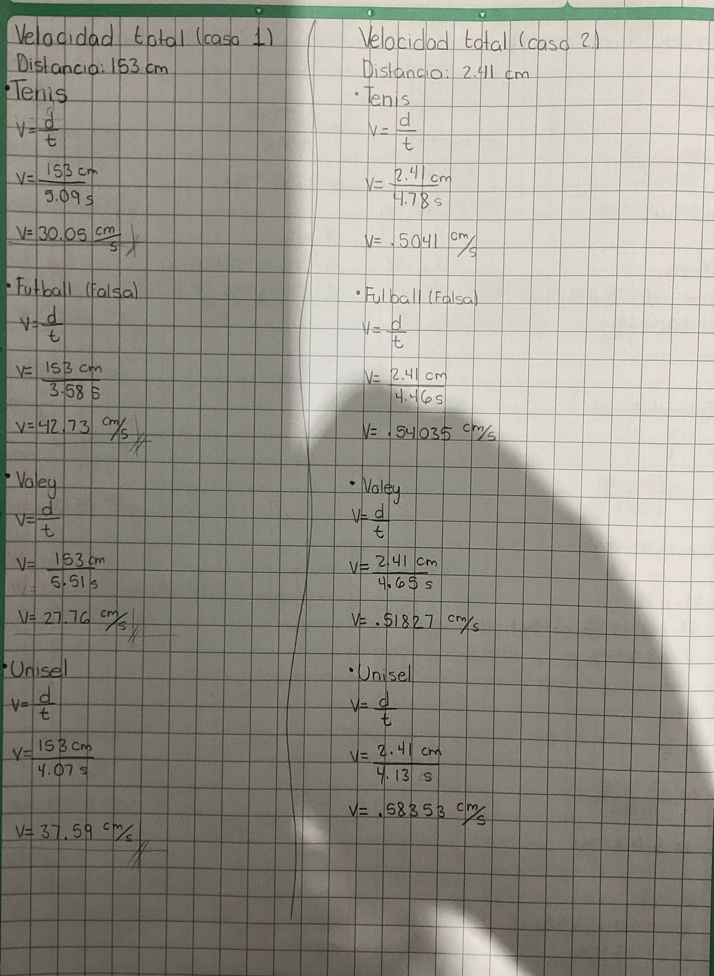 Velocidad total (caso 1)
Distancia: 153 cm
• Tenis
V= d/t
V= 153 cm / 5.09 s
V= 30.05 cm/s
• Futball (Falsa)
V= d/t
V= 153 cm / 3.58 s
V= 42.73 cm/s
• Valey
V= d/t
V= 153 cm / 5.51 s
V= 27.76 cm/s
• Unisel
V= d/t
V= 153 cm / 4.07 s
V= 37.59 cm/s
Velocidad total (caso 2)
Distancia: 2.41 cm
• Tenis
V= d/t
V= 2.41 cm / 4.78 s
V= .5041 cm/s
• Fulball (Falsa)
V= d/t
V= 2.41 cm / 4.46 s
V= .54035 cm/s
• Valey
V= d/t
V= 2.41 cm / 4.65 s
V= .51827 cm/s
• Unisel
V= d/t
V= 2.41 cm / 4.13 s
V= .58353 cm/s